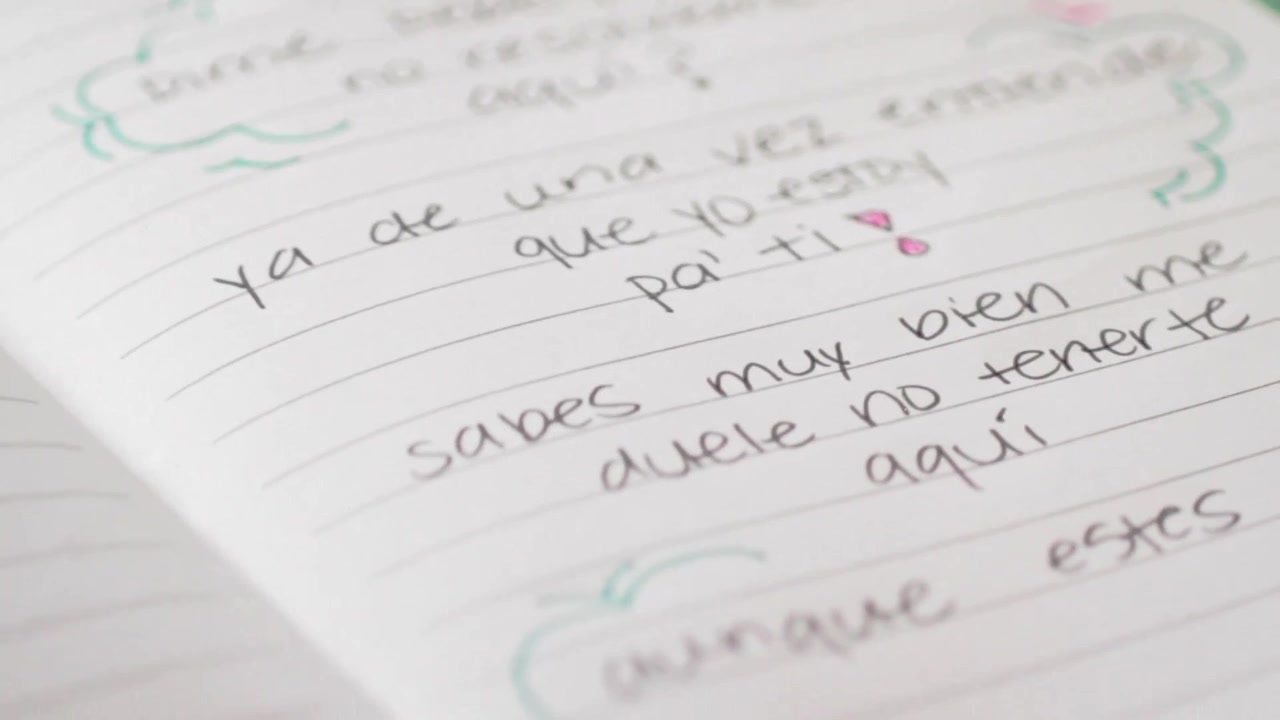 Dime
no
aquí?
ya de una vez entiende
que yo estoy
pa' ti!
sabes muy bien me
duele no tenerte
aquí
aunque estes